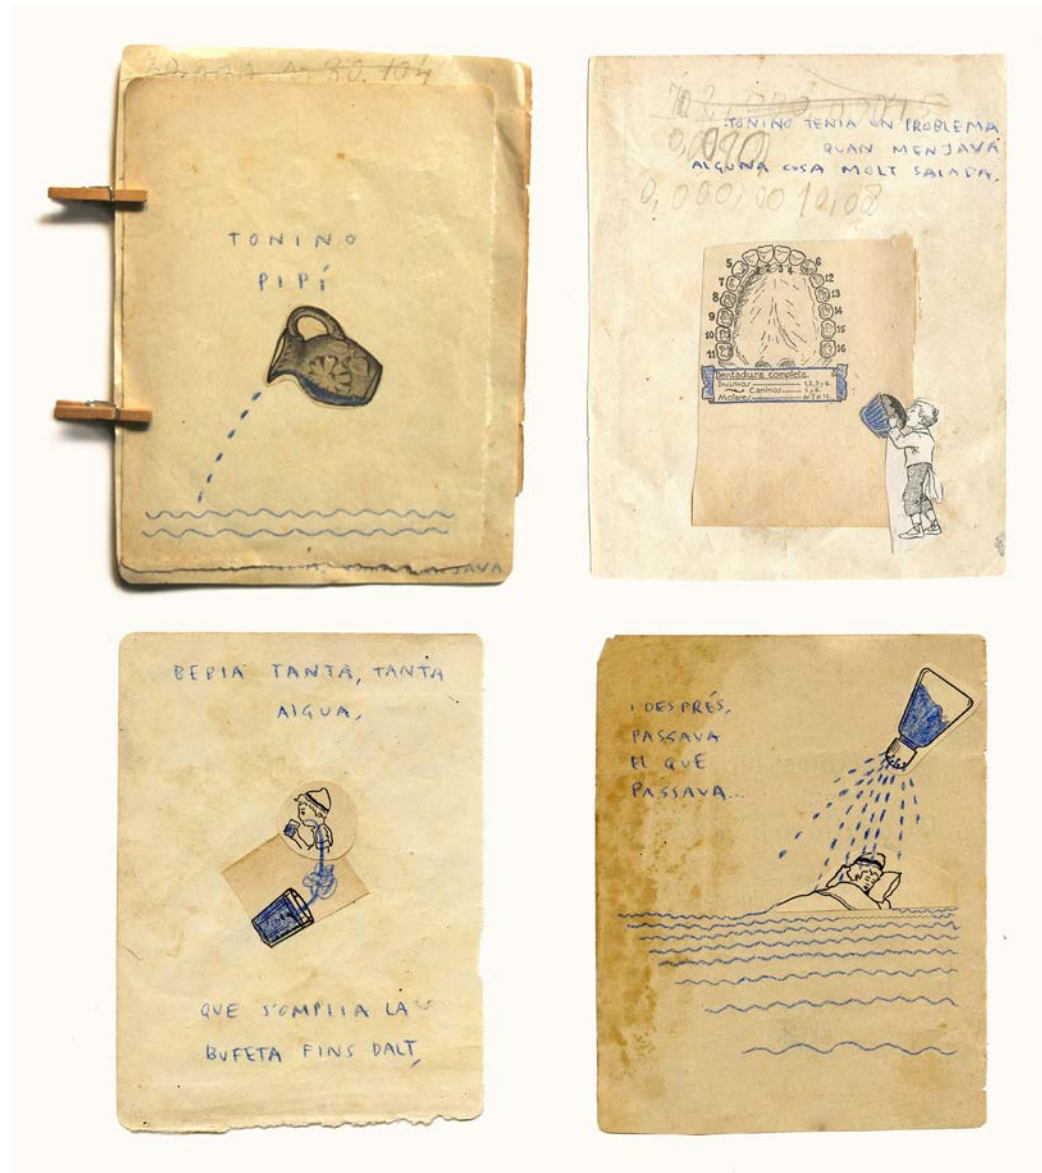 TONINO
PIPÍ
TONINO TENIA UN PROBLEMA
QUAN MENJAVA
ALGUNA COSA MOLT SALADA,
5
6
1 2 3 4
7
12
8
13
9
14
10
15
11
16
Dentadura completa.
Incisivos
Caninos
Molares
BEBIA TANTA, TANTA
AIGUA,
QUE S'OMPLIA LA
BUFETA FINS DALT,
I DESPRÉS,
PASSAVA
EL QUE
PASSAVA...